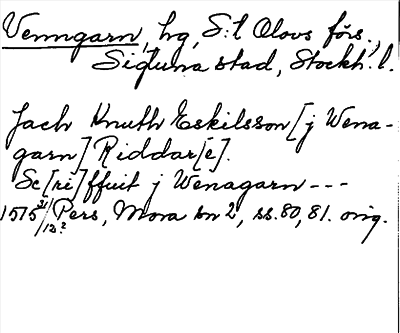 Venngarn, hg, S:t Olovs förs.,
Sigtuna stad, Stockh. l.
Jach Knuth Eskilsson [j Wena-
garn] Riddar[e].
Sc[ri]ffuit j Wenagarn ---
1515 21/12? Pers, Mora sn 2, ss. 80, 81. orig.